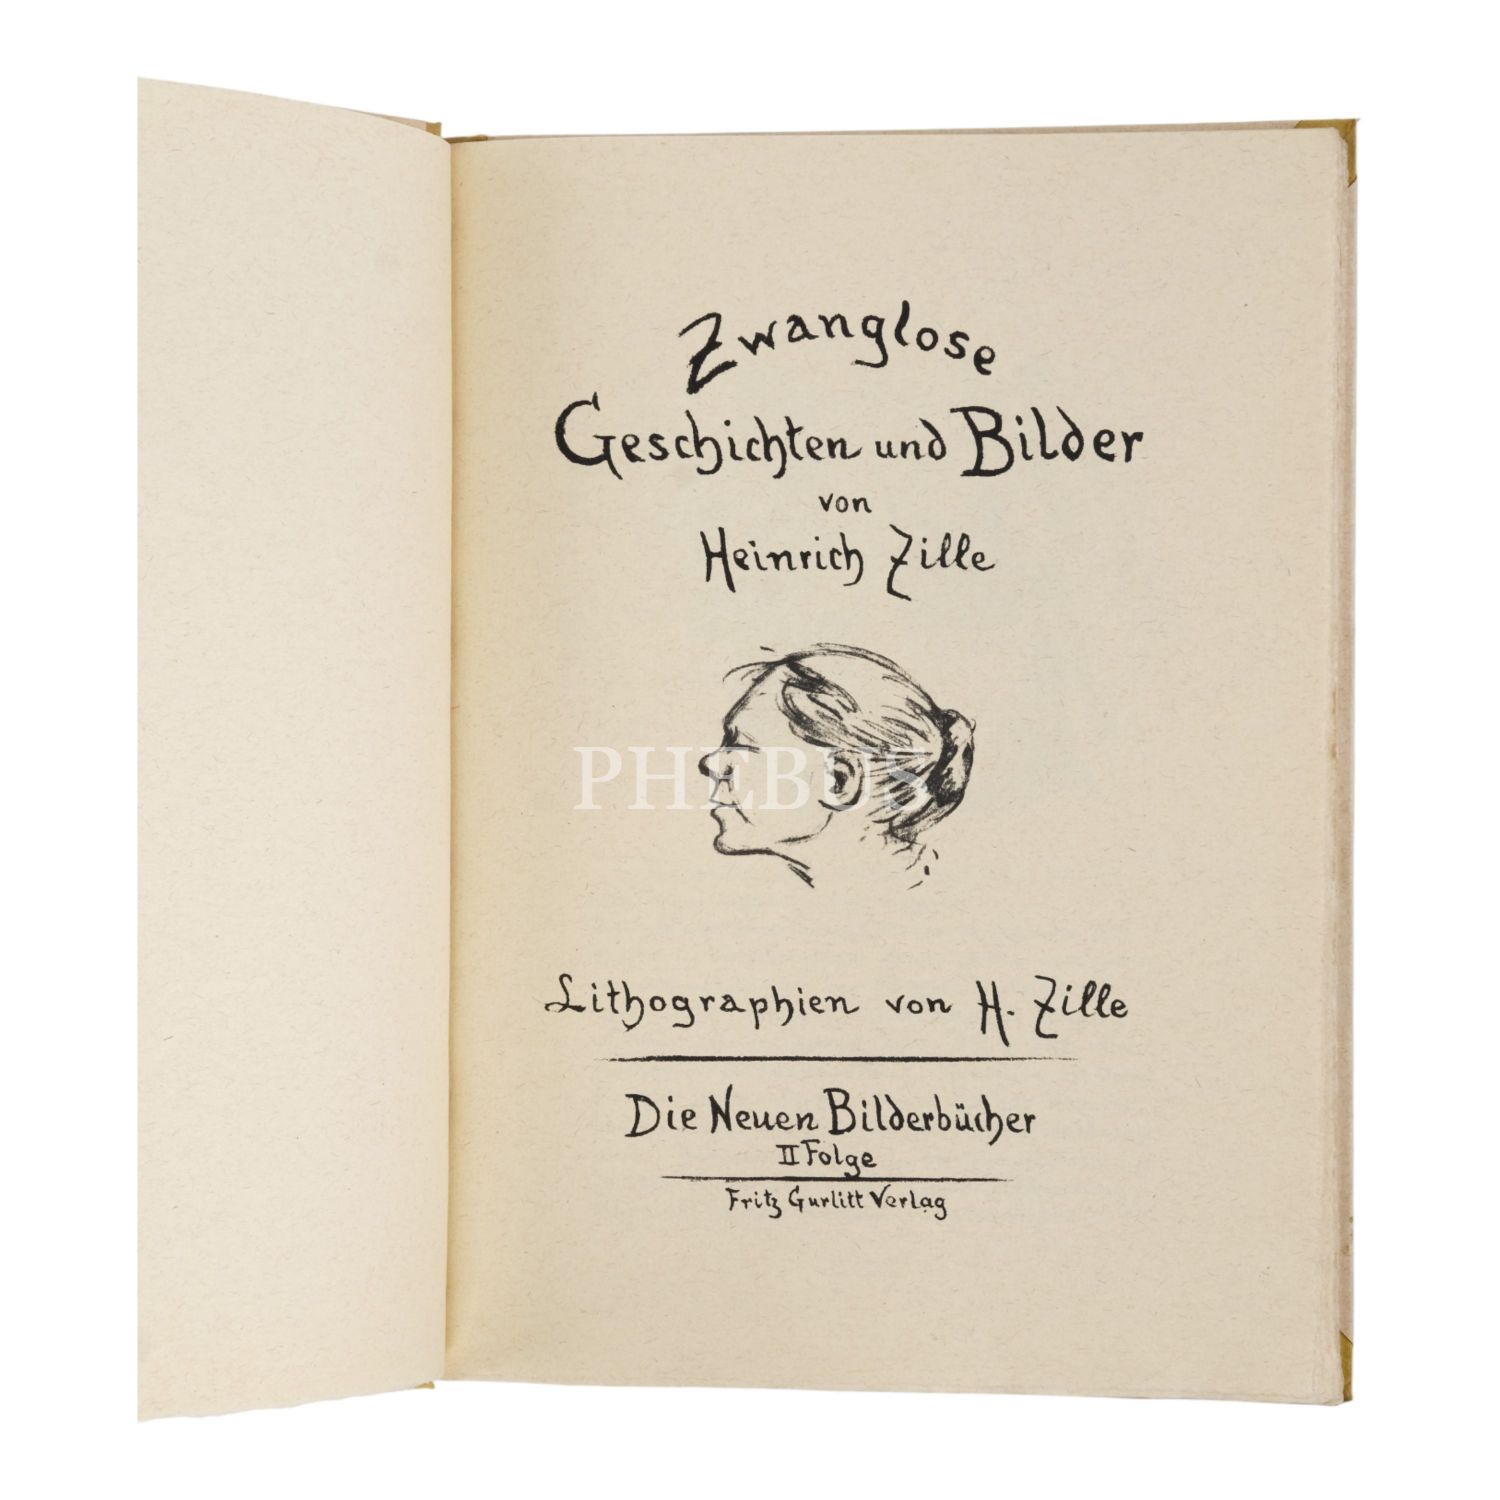 Zwanglose
Geschichten und Bilder
von
Heinrich Zille
PHEBUS
Lithographien von H. Zille
Die Neuen Bilderbücher
II Folge
Fritz Gurlitt Verlag